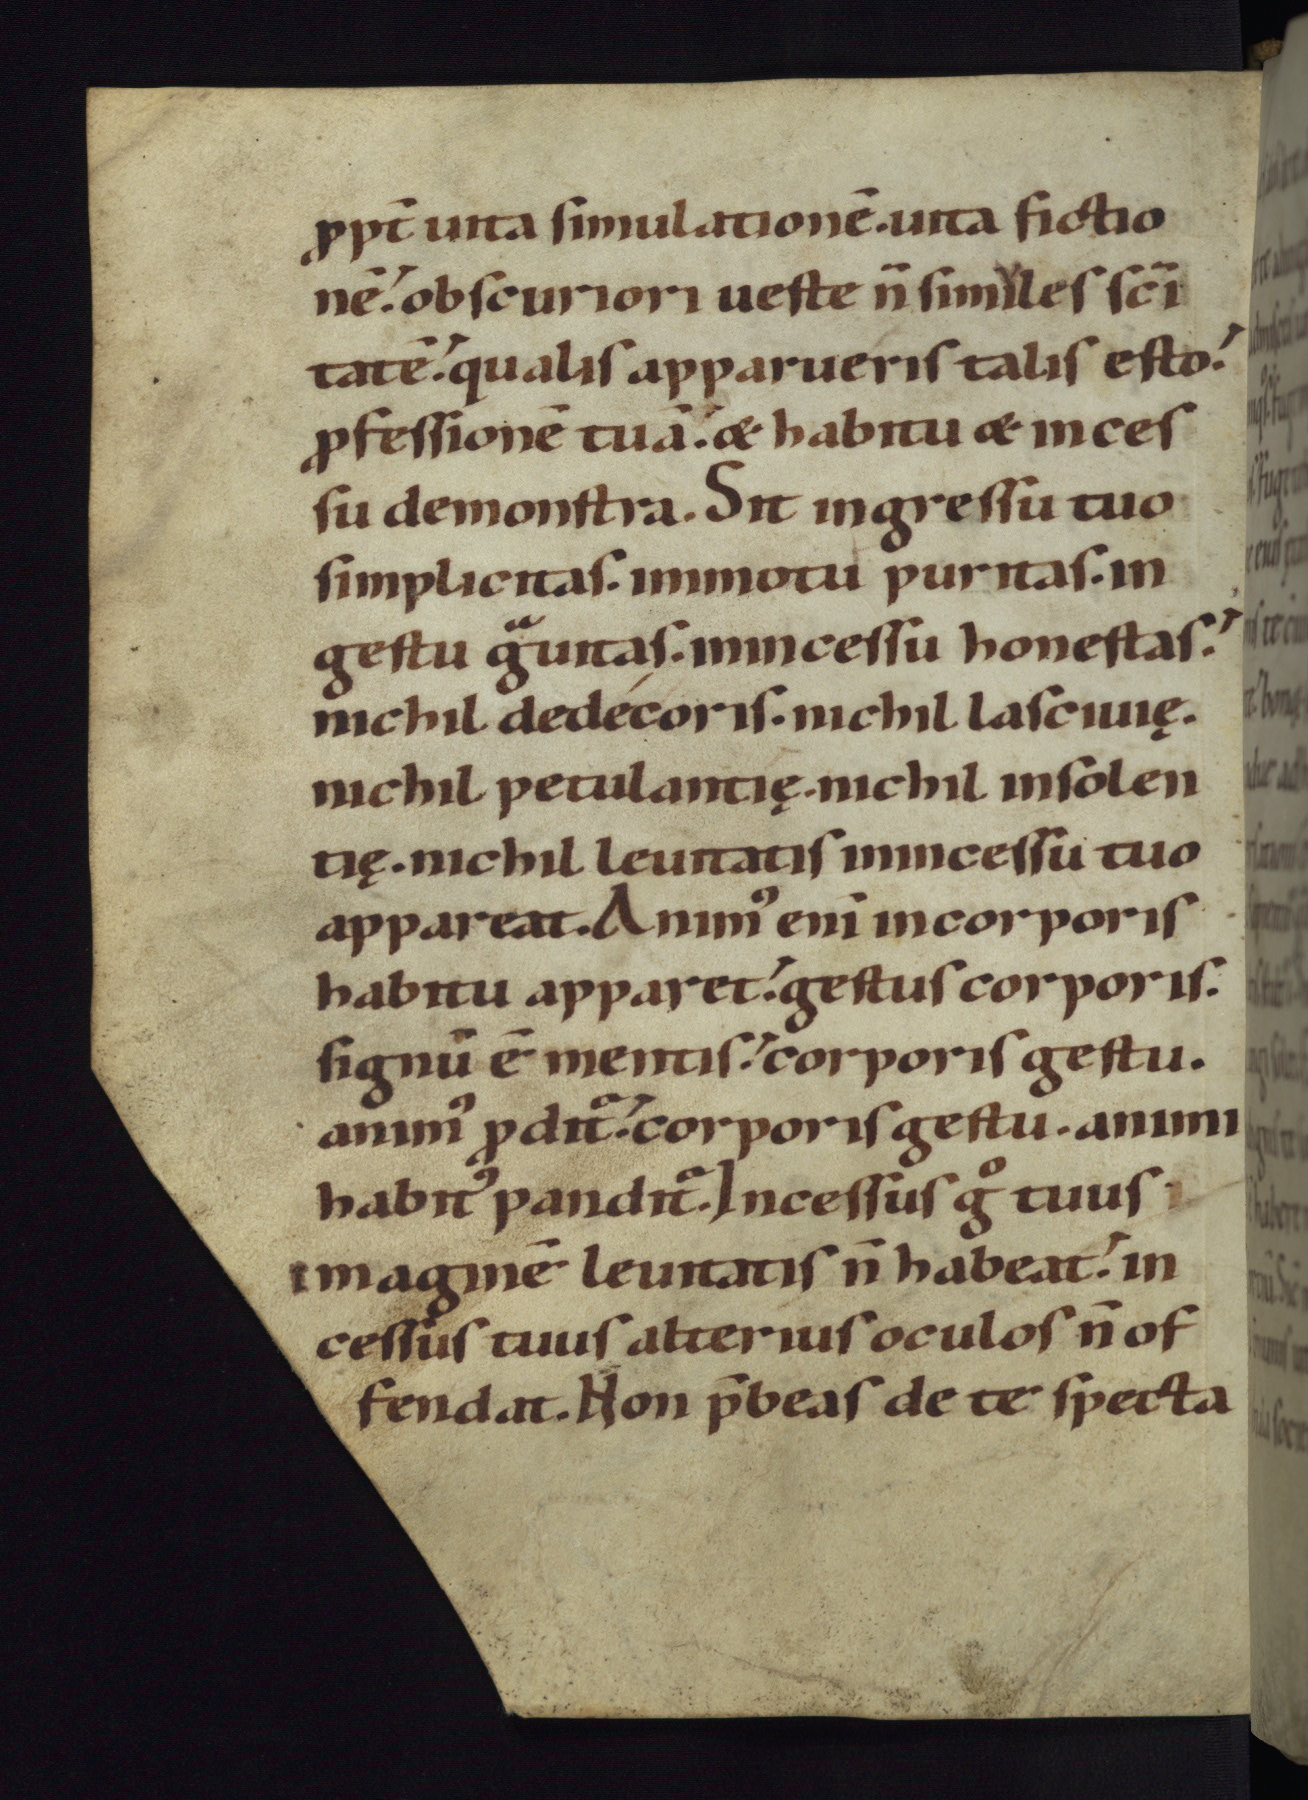 ꝓpt̄ uita simulationē. uita fictio
nē. obscuriori ueste n̄ similes sc̄i
tatē. qualis apparueris talis esto.
ꝓfessionē tuā. & habitu & inces
su demonstra. Sit ingressu tuo
simplicitas. inmotu puritas. in
gestu gͣuitas. inincessu honestas.
nichil dedécoris. nichil lasciuię.
nichil petulantię. nichil insolen
tię. nichil leuitatis inincessu tuo
appareat. Animꝰ eni incorporis
habitu apparet. gestus corporis.
signū ē mentis. corporis gestu.
animꝰ ꝓdit᷑. corporis gestu. animi
habitꝰ pandit᷑. Incessus gͦ tuus
imaginē leuitatis n̄ habeat. in
cessus tuus alterius oculos n̄ of
fendat. Non p̄beas de te specta